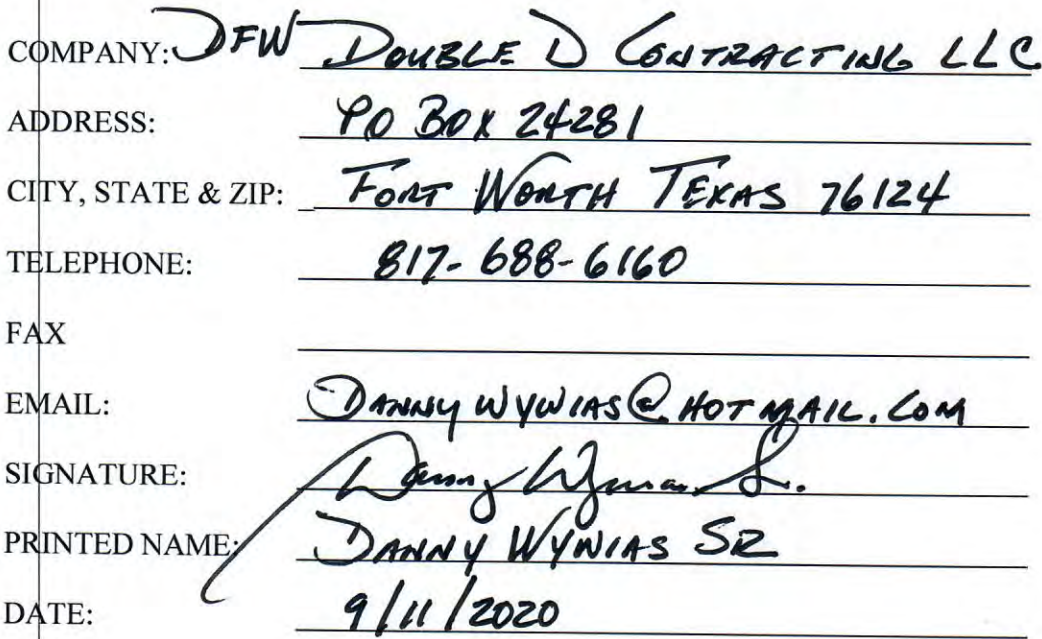 COMPANY: DFW DOUBLE D CONTRACTING LLC
ADDRESS: PO BOX 24281
CITY, STATE & ZIP: FORT WORTH TEXAS 76124
TELEPHONE: 817-688-6160
FAX
EMAIL: DANNYWYWIAS@HOTMAIL.COM
SIGNATURE: Danny Sr.
PRINTED NAME: DANNY WYWIAS SR
DATE: 9/11/2020